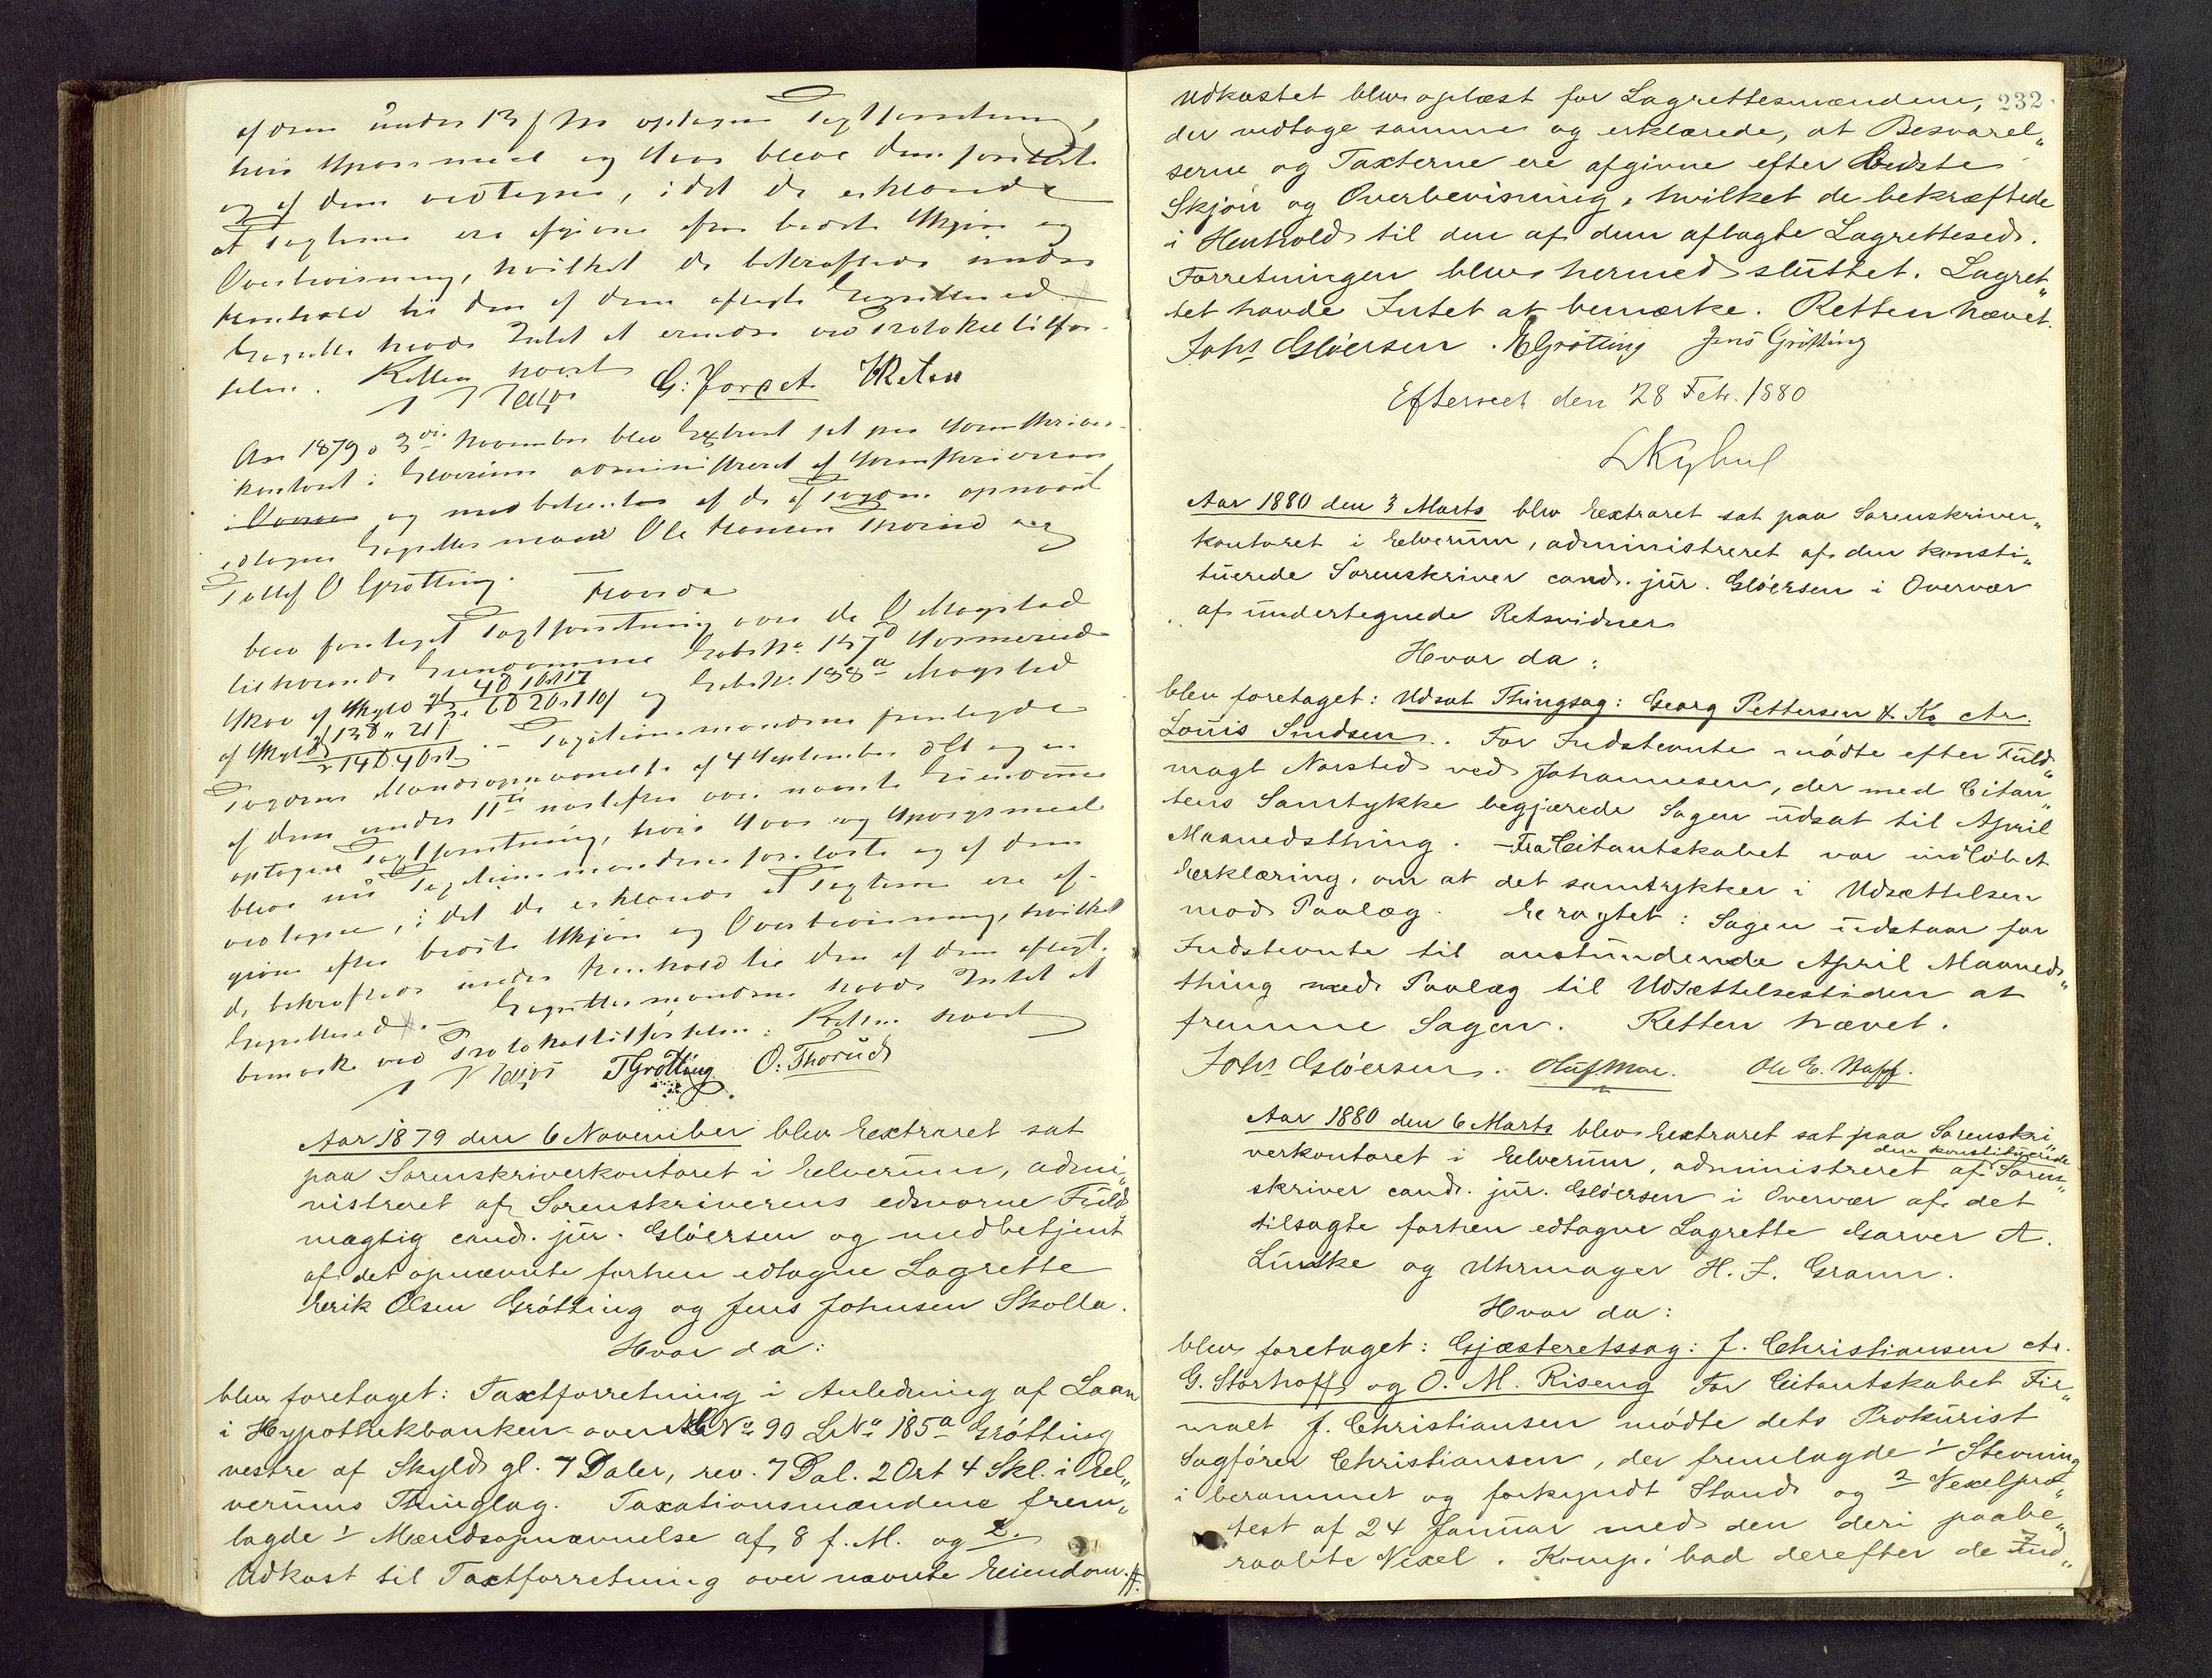 af dem under 13 f. Ms optagne Taxtforretning,
hvis Spørsmaal og Svar bleve dem forelæst
og af dem vedtagne, idet de erklærede
at Taxterne ere afgivne efter bedste Skjøn og
Overbevisning, hvilket de bekræftede under
Henhold til den af dem aflagte Lagretteed.
Lagrettet havde Intet at erindre ved Protokoltilfør-
selen. Retten hævet
G: Forset
Aar 1879 d 3die November blev Extraret sat paa Sorenskriver-
kontoret i Elverum administreret af Sorenskriveren
og medbetjent af de af Fogden opnævnte
edtagne Lagrettesmænd Ole Hansen Thorud og
Tollef O Grøtting. Hvorda
blev foretaget Taxtforretning over de O Mogstad
tilhørende Eiendomme Løbe No 157d
Skov af Skyld gl. 4D 1 Ort 17 og Løbe No. 188a Mogstad
af Skyld gl 13D " 21s . – Taxationsmændene fremlagde
Fogdens Mandsopnævnelse af 4 September dAt og en
af dem under 11te næstefter over nævnte Eiendomme
optagne Taxtforretning, hvis Svar og Spørgsmaal
bleve nu Taxtationsmændene forelæste og af dem
vedtagne, idet de erklærede at Taxterne ere af-
givne efter bedste Skjøn og Overbevisning, hvilket
de bekræftede under Henhold til den af dem aflagte
Lagretteed. – Lagrettesmændene havde Intet at
bemærke ved Protokoltilførselen. Retten hævet
TGrøtting O: Thorud
Aar 1879 den 6 November blev Eextraret sat
paa Sorenskriverkontoret i Eelverum, admi„
nistreret af Sorenskriverens edsvorne Fuld„
mægtig cand. jur. Gløersen og medbetjent
af det opnævnte forhen edtagne Lagrette
Eerik Olsen Grøtting og Jens Johnsen Skolla.
Hvor da:
blev foretaget: Taxtforretning i Anledning af Laan
i Hypothekbanken over MNo 90 LNo 185a Grøtting
vestre af Skyld gl. 7 Daler, rev. 7 Dal. 2 Ort 4 Skl. i Eel„
verums Thinglag. Taxationsmændene frem„
lagde 1 Mændsopnævnelse af 8 f. M. og 2.
Udkast til Taxtforretning over nævnte Eeiendom. #.
232
Udkastet blev oplæst for Lagrettesmændene,
der vedtage samme og erklærede, at Besvarel„
serne og Taxterne ere afgivne efter bedste
Skjøn og Overbevisning, hvilket de bekræftede
i Henhold til den af dem aflagte Lagrettesed.
Forretningen blev hermed sluttet. Lagret„
tet havde Intet at bemærke. Retten hævet.
Johs Gløersen. EGrøtting Jens Grøtting
Efterseet den 28 Feb. 1880
Aar 1880 den 3 Marts blev Eextraret sat paa Sorenskriver„
kontoret i Eelverum, administreret af den konsti„
tuerede Sorenskriver cand. jur. Gløersen i Overvær
af undertegnede Retsvidner
Hvor da:
blev foretaget: Udsat Thingsag: Georg Pettersen & Ko ctr.
Louis Smidsen. For Indstevnte mødte efter Fuld„
magt Norsted ved Johannesen, der med Citan„
tens Samtykke begjærede Sagen udsat til April
Maanedsthing. – Fra Citantskabet var indløbet
Eerklæring, om at det samtykker i Udsættelsen
mod Paalæg. Eeragtet: Sagen udstaar for
Indstevnte til anstundende April Maaneds„
thing med Paalæg til Udsættelsestiden at
fremme Sagen. Retten hævet.
Johs Gløersen. Oluf Moe. Ole E. Næss.
Aar 1880 den 6 Marts blev Eextraret sat paa Sorenskri„
verkontoret i Eelverum, administreret af den konstituerede Soren„
skriver cand. jur. Gløersen i Overvær af det
tilsagte forhen edtagne Lagrette Garver A.
Linske og Uhrmager H. J. Gramm.
Hvor da:
blev foretaget: Gjæsteretssag: J. Christiansen ctr.
G. Storhoff og O. M. Riseng For Citantskabet Fir„
maet J. Christiansen mødte dets Prokurist
Sagfører Christiansen, der fremlagde 1 Stevning
i berammet og forkyndt Stand og 2 Vexelpro„
test af 24 Januar med den deri paabe„
raabte Vexel. Komp. bad derefter de Ind„